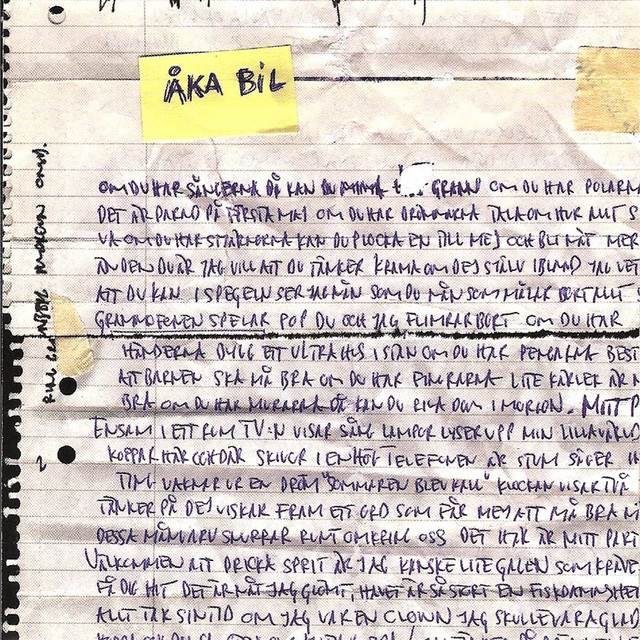 ÅKA BIL
OM DU HAR SÅNGERNA DÅ KAN DU MINNA GRANN OM DU HAR POLARN
DET ÄR PARAD PÅ FÖRSTA MAJ OM DU HAR DRÖMMARNA TALA OM HUR ALLT S
VA OM DU HAR STJÄRNORNA KAN DU PLOCKA EN TILL MEJ OCH BLI NÅT MER
ÄN DEN DU ÄR JAG VILL ATT DU TÄNKER KRAMA OM DEJ SJÄLV IBLAND JAG VET
ATT DU KAN I SPEGELN SER JAG MÄN SOM DU MÄN SOM MÅLAR BORT ALLT
GRAMMOFONEN SPELAR POP DU OCH JAG FLIMRAR BORT OM DU HAR
HÄNDERNA BYGG ETT ULTRAHUS I STAN OM DU HAR PENGARNA BEST
ATT BARNEN SKA MÅ BRA OM DU HAR FINGRARNA LITE KÄRLEK ÄR
BRA OM DU HAR MURARNA DÅ KAN DU RIVA DOM I MORGON. MITT P
ENSAM I ETT RUM TV:N VISAR SÅNG LAMPOR LYSER UPP MIN LILLA VÄRLD
KOPPAR HÄR OCH DÄR SKIVOR I EN HÖG TELEFONEN ÄR STUM SÄGER
TIM VAKNAR UR EN DRÖM "SOMMAREN BLEV KALL" KLOCKAN VISAR TVÅ
TÄNKER PÅ DEJ VISKAR FRAM ETT ORD SOM FÅR MEJ ATT MÅ BRA
DESSA SNURRAR RUNT OMKRING OSS DET HÄR ÄR MITT PART
VÄLKOMMEN ATT DRICKA SPRIT ÄR JAG KANSKE LITE GALEN SOM KRÄVE
FÅ DIG HIT DET ÄR NÅT JAG GLÖMT, HAVET ÄR SÅ STORT EN FISKDAMM
ALLT TAR SIN TID OM JAG VAR EN CLOWN JAG SKULLE VARA GLAD
RING MORGON